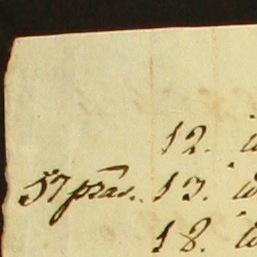 12.
57 präs. 13.
18.